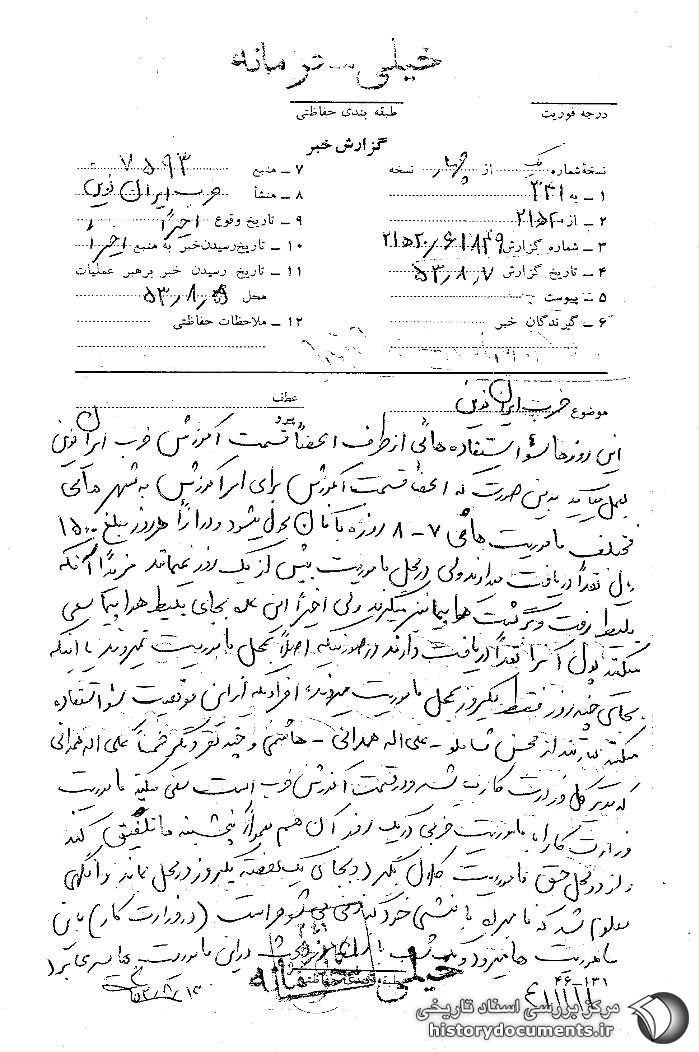 خیلی محرمانه
درجه فوریت
طبقه بندی حفاظتی
گزارش خبر
نسخهٔ شماره یک از چهار نسخه
۱ ـ به ۳۴۱
۲ ـ از ۲۱ه۲۰
۳ ـ شماره گزارش ۲۱ه۲۰/۶۱۸۴۹
۴ ـ تاریخ گزارش ۵۳٫۸٫۷
۵ ـ پیوست
۶ ـ گیرندگان خبر
۷ ـ منبع ۷۵۹۳
۸ ـ منشأ حزب ایران نوین
۹ ـ تاریخ وقوع اخیراً
۱۰ ـ تاریخ رسیدن خبر به منبع اخیراً
۱۱ ـ تاریخ رسیدن خبر برهبر عملیات
محل ۵۳٫۸٫۵
۱۲ ـ ملاحظات حفاظتی
موضوع حزب ایران نوین
عطف
پیرو
این روزها سوء استفاده هائی از طرف اعضاء قسمت آموزش حزب ایران نوین
بعمل میآید بدین صورت که اعضاء قسمت آموزش برای امر آموزش به شهر هائی
مختلف ماموریت هائی ۷ – ۸ روزه بآنان محول میشود و در ازاء هر روز مبلغ ۱۵۰۰
ریال نقداً دریافت میدارند ولی در محل ماموریت بیش از یک روز نمیمانند مزیداً آنکه
بلیط رفت و برگشت هواپیما نیز میگیرند ولی اخیراً این عده بجای بلیط هواپیما سعی
میکنند پول آنرا نقداً دریافت دارند در صورتیکه اصلاً بمحل ماموریت نمیروند یا اینکه
بجای چند روز فقط یکروز بمحل ماموریت میروند، افرادیکه از این موقعیت سوء استفاده
میکنند عبارتند از محسن شاملو – علی اله همدانی – هاشمی و چند نفر دیگر ضمناً علی اله همدانی
که مدیر کل وزارت کار و در قسمت آموزش حزب است سعی میکند ماموریت
وزارت کار را با ماموریت حزبی در یک روز آن هم معمولاً پنجشنبه ها تلفیق کند
و از دو محل حق ماموریت کلان بگیرد و بجای یک هفته یکروز در محل بماند وانگهی
معلوم شد که نامبرده با منشی خود که زنی بی شوهر است (در وزارت کار) باین
ماموریت ها میرود و در این ماموریت ها بسر میبرد
خیلی محرمانه
طبقه بندی حفاظتی
۴۶-۱۳۱
مرکز بررسی اسناد تاریخی
historydocuments.ir